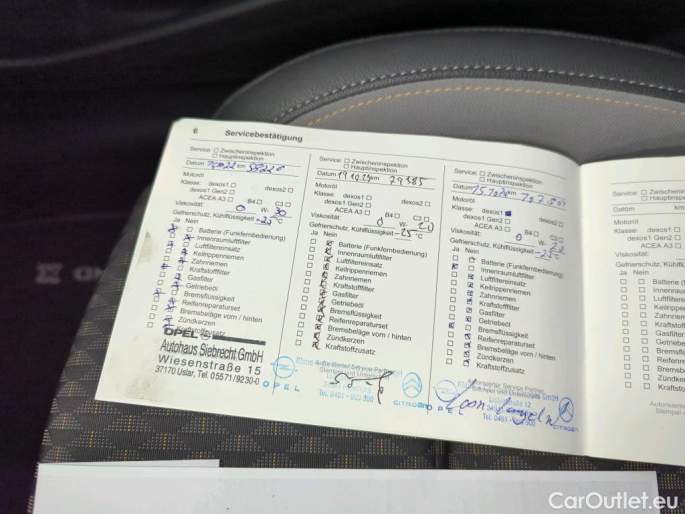 6 Servicebestätigung
Service: Zwischeninspektion
Hauptinspektion
Datum km
Motoröl
Klasse: dexos1 dexos2
dexos1 Gen2
ACEA A3 B4 C3
Viskosität: 0 W- 30
Gefrierschutz, Kühlflüssigkeit -25 °C
Ja Nein
Batterie (Funkfernbedienung)
Innenraumluftfilter
Luftfiltereinsatz
Keilrippenriemen
Zahnriemen
Kraftstofffilter
Gasfilter
Getriebeöl
Bremsflüssigkeit
Reifenreparaturset
Bremsbeläge vorn / hinten
Zündkerzen
Kraftstoffzusatz
OPEL
Autohaus Siebrecht GmbH
Wiesenstraße 15
37170 Uslar, Tel. 05571/9230-0
Service: Zwischeninspektion
Hauptinspektion
Datum km 79385
Motoröl
Klasse: dexos1 dexos2
dexos1 Gen2
ACEA A3 B4 C3
Viskosität: 0 W- 20
Gefrierschutz, Kühlflüssigkeit -25 °C
Ja Nein
Batterie (Funkfernbedienung)
Innenraumluftfilter
Luftfiltereinsatz
Keilrippenriemen
Zahnriemen
Kraftstofffilter
Gasfilter
Getriebeöl
Bremsflüssigkeit
Reifenreparaturset
Bremsbeläge vorn / hinten
Zündkerzen
Kraftstoffzusatz
Autorisierter Service Partner
Stempel und Unterschrift
OPEL
CITROËN
Service: Zwischeninspektion
Hauptinspektion
Datum km
Motoröl
Klasse: dexos1 dexos2
dexos1 Gen2
ACEA A3 B4 C3
Viskosität: 0 W-
Gefrierschutz, Kühlflüssigkeit -25 °C
Ja Nein
Batterie (Funkfernbedienung)
Innenraumluftfilter
Luftfiltereinsatz
Keilrippenriemen
Zahnriemen
Kraftstofffilter
Gasfilter
Getriebeöl
Bremsflüssigkeit
Reifenreparaturset
Bremsbeläge vorn / hinten
Zündkerzen
Kraftstoffzusatz
Autorisierter Service Partner
Stempel und Unterschrift
OPEL
CITROËN
Service: Zwischeninspektion
Hauptinspektion
Datum km
Motoröl
Klasse: dexos1
dexos1 Gen2
ACEA A3
Viskosität:
Gefrierschutz, Kühl
Ja Nein
Batterie (Fun
Innenraumluft
Luftfiltereinsatz
Keilrippenriemen
Zahnriemen
Kraftstofffilter
Gasfilter
Getriebeöl
Bremsflüssigkeit
Reifenreparaturset
Bremsbeläge
Zündkerzen
Kraftstoffzusatz
CarOutlet.eu